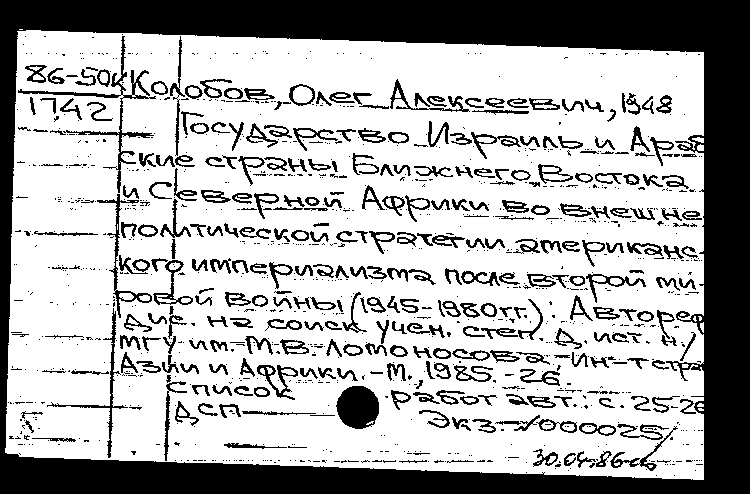 86-50к Колобов, Олег Алексеевич, 1948
1742
Государство Израиль и Араб
ские страны Ближнего Востока
и Северной Африки во внешне
политической стратегии американс-
кого империализма после второй ми-
ровой войны (1945-1980гг.): Автореф
дис. на соиск. учен. степ. д. ист. н./
МГУ им. М.В. Ломоносова. Ин-т стра
Азии и Африки. -М., 1985. -26
список работ авт.: с. 25-26
ДСП Экз №000025/
30.04.86